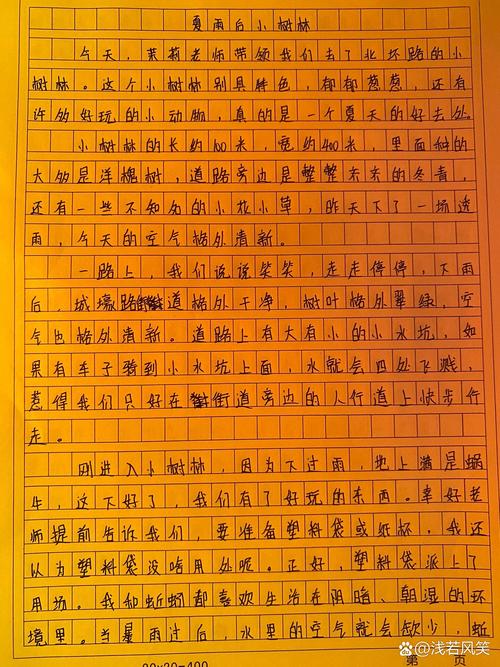 夏雨后小树林
今天，茉莉老师带领我们去了北环路的小
树林。这个小树林别具特色，郁郁葱葱，还有
许多好玩的小动物，真的是一个夏天的好去处。
小树林的长约100米，宽约400米，里面种的
大多是洋槐树，道路旁边是整整齐齐的冬青，
还有一些不知名的小花小草，昨天下了一场透
雨，今天的空气格外清新。
一路上，我们说说笑笑，走走停停，下雨
后，城壕路街道格外干净，树叶格外翠绿，空
气也格外清新。道路上有大有小的小水坑，如
果有车子骑到小水坑上面，水就会四处飞溅，
惹得我们只好在街道旁边的人行道上快步行
走。
刚进入小树林，因为下过雨，地上满是蜗
牛，这下好了，我们有了好玩的东西。幸好老
师提前告诉我们，要准备塑料袋或纸杯，我还
以为塑料袋没啥用处呢。正好，塑料袋派上了
用场。我和蚯蚓都喜欢生活在阴暗、潮湿的环
境里。当暴雨过后，水里的空气就会缺少，蚯
20×20=400
第 页
浅若风笑